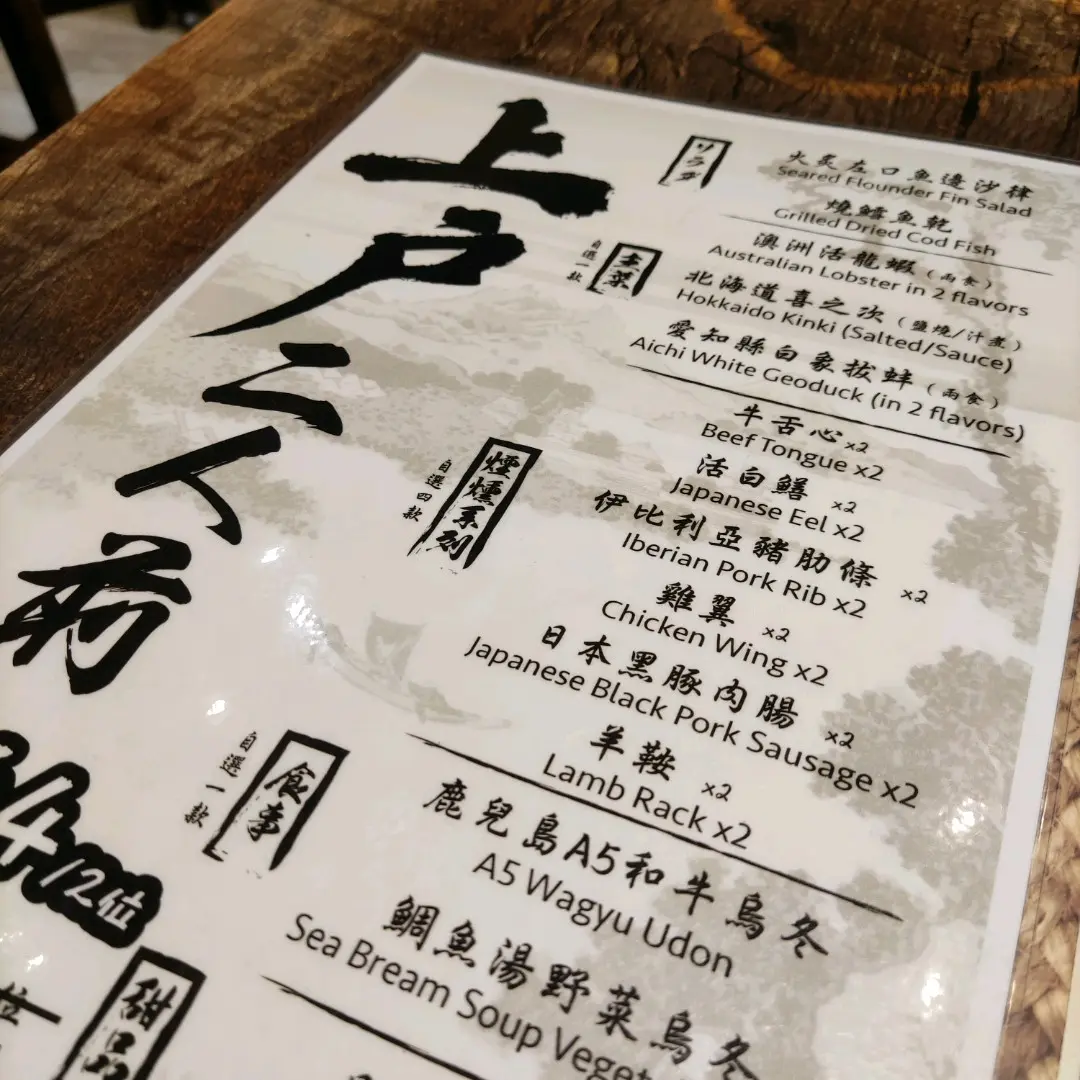 上戶二人前
ソラダ
火炙左口魚邊沙律
Seared Flounder Fin Salad
燒鱈魚乾
Grilled Dried Cod Fish
主菜
自選一款
澳洲活龍蝦 (兩食)
Australian Lobster in 2 flavors
北海道喜之次 (鹽燒/汁煮)
Hokkaido Kinki (Salted/Sauce)
愛知縣白象拔蚌 (兩食)
Aichi White Geoduck (in 2 flavors)
煙燻系列
自選四款
牛舌心 x2
Beef Tongue x2
活白鱔 x2
Japanese Eel x2
伊比利亞豬肋條 x2
Iberian Pork Rib x2
雞翼 x2
Chicken Wing x2
日本黑豚肉腸 x2
Japanese Black Pork Sausage x2
羊鞍 x2
Lamb Rack x2
食事
自選一款
鹿兒島A5和牛烏冬
A5 Wagyu Udon
鯛魚湯野菜烏冬
Sea Bream Soup Veget
/2位
位
甜品